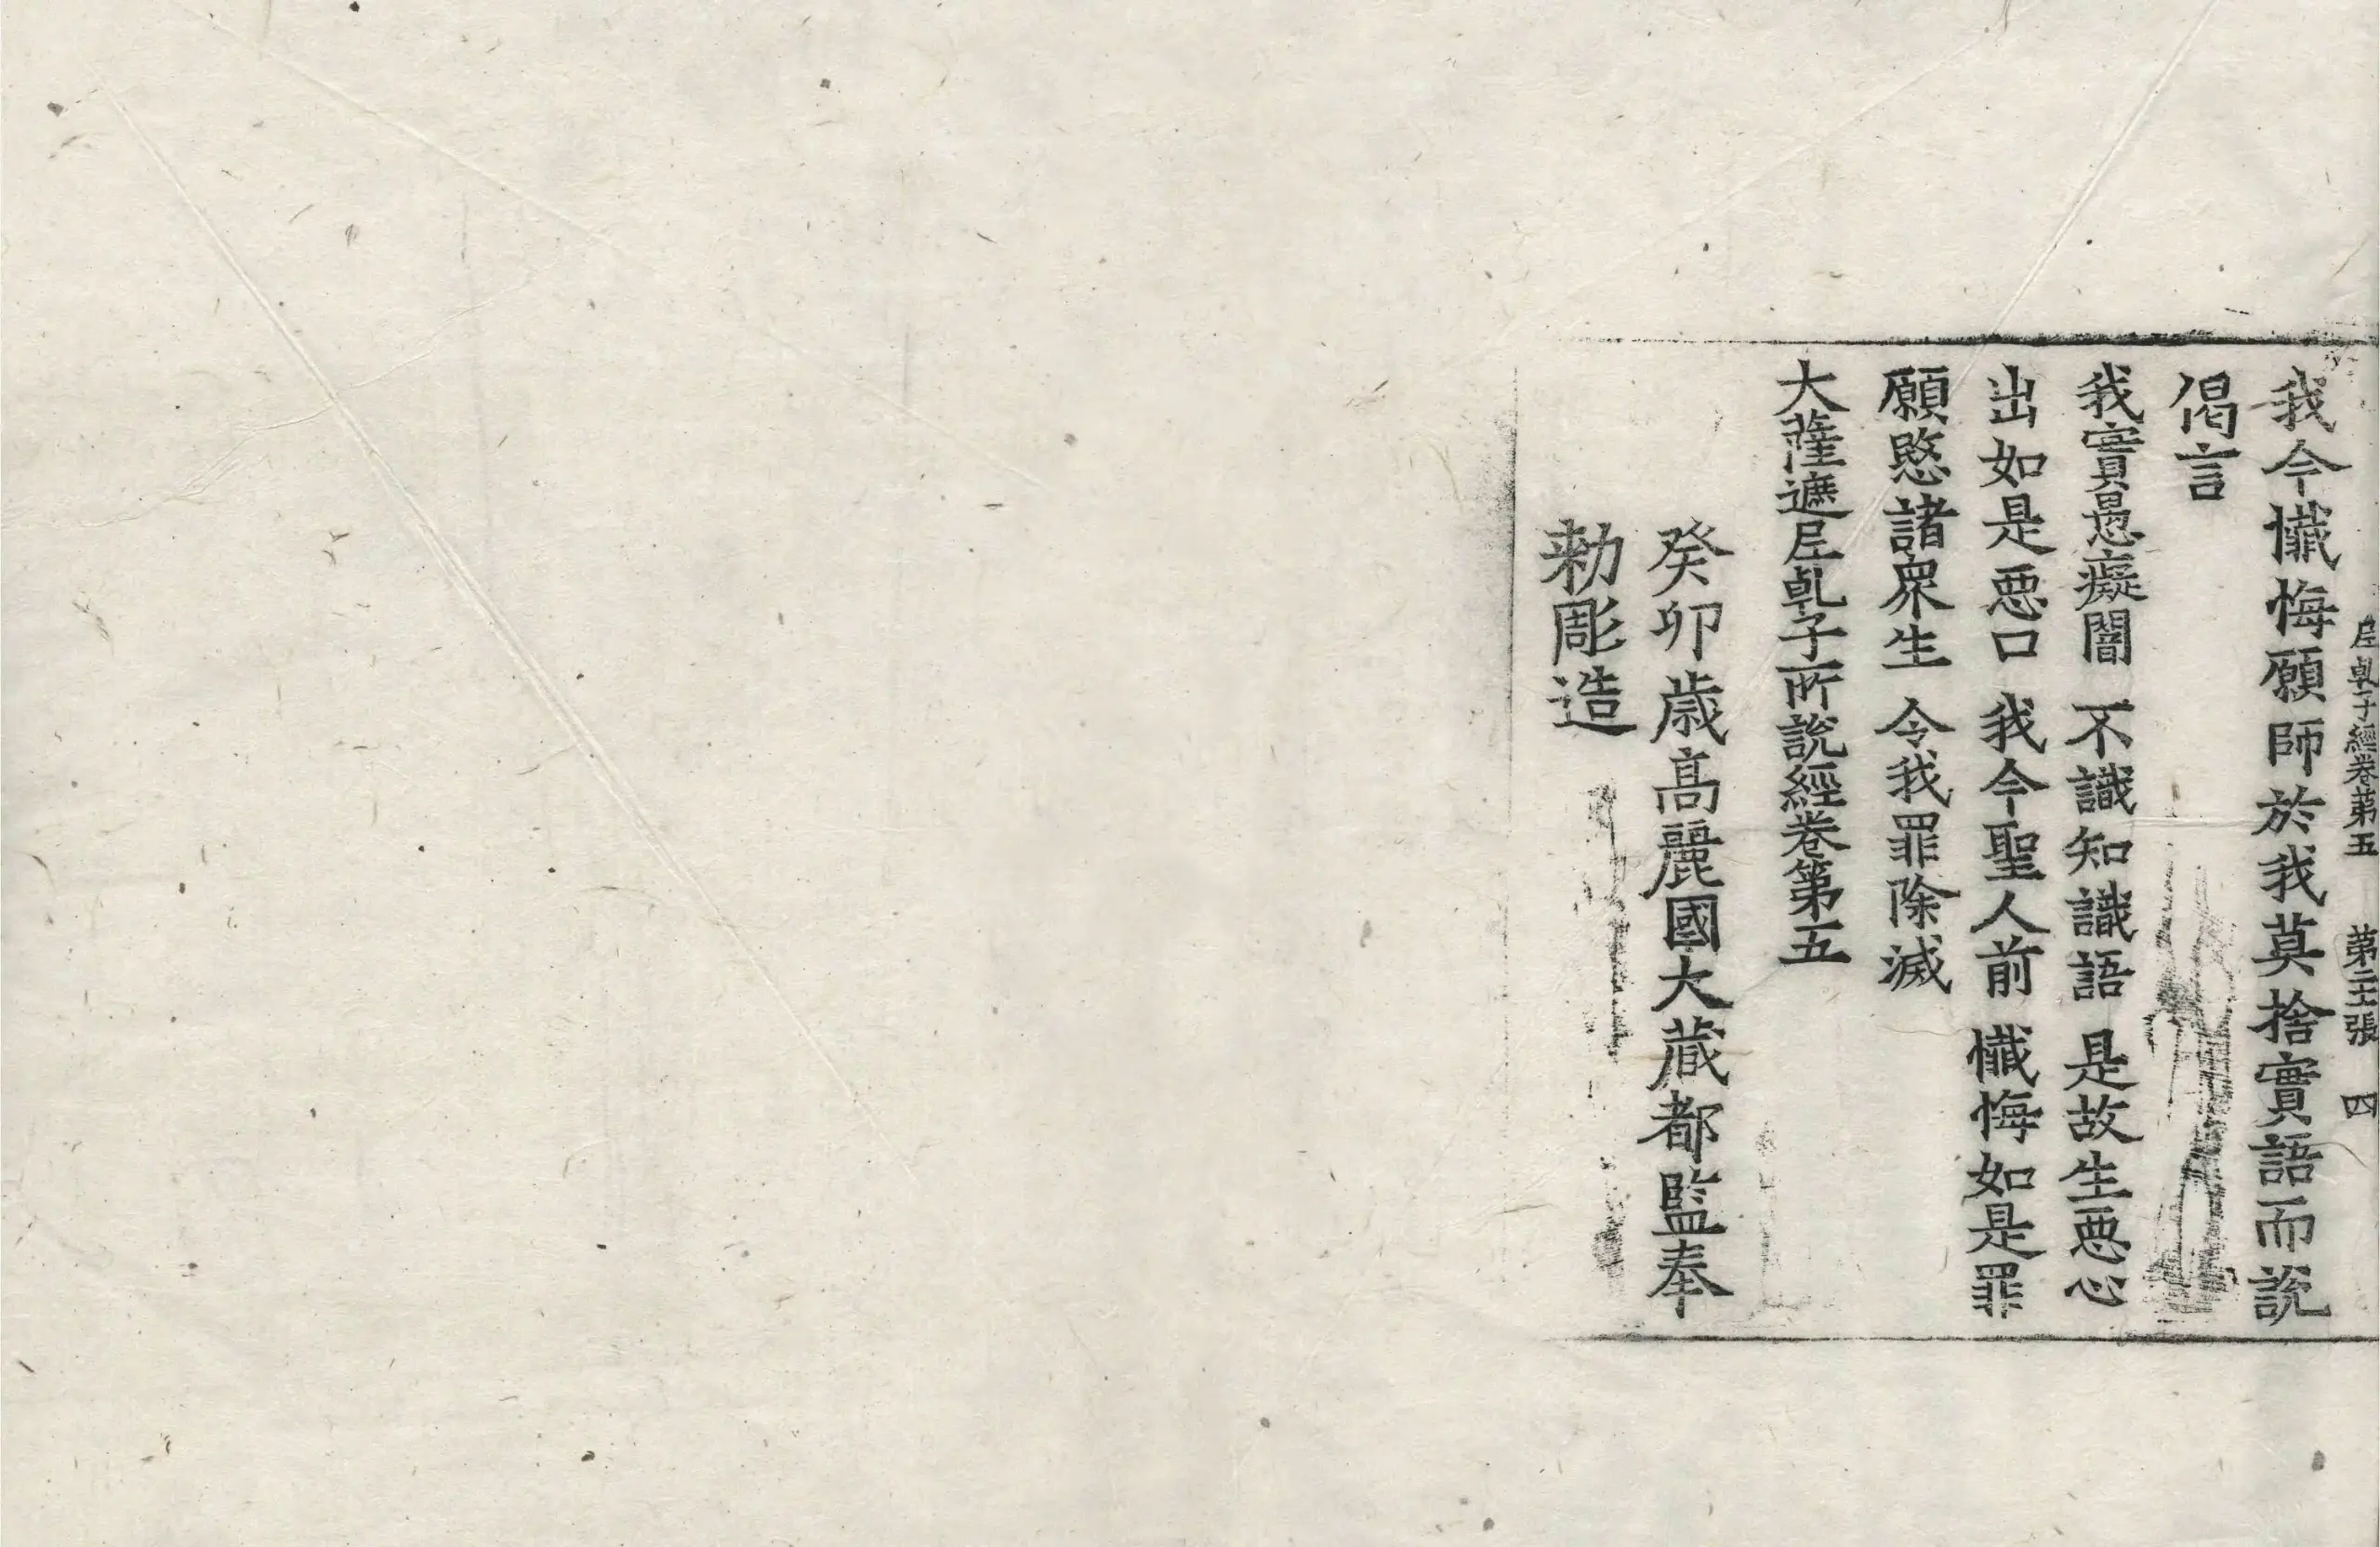 尼乹子經卷第五 第二十張 四
我今懺悔願師於我莫捨實語而說
偈言
我實愚癡闇 不識知識語 是故生惡心
出如是惡口 我今聖人前 懺悔如是罪
願愍諸衆生 令我罪除滅
大薩遮尼乹子所說經卷第五
癸卯歲高麗國大藏都監奉
勅彫造